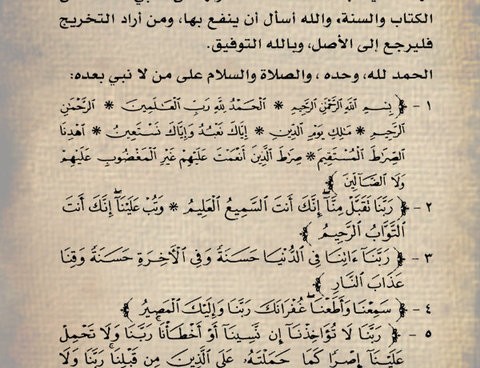 الكتاب والسنة، والله أسأل أن ينفع بها، ومن أراد التخريج
فليرجع إلى الأصل، وبالله التوفيق.
الحمد لله، وحده ، والصلاة والسلام على من لا نبي بعده:
١ - ﴿ بِسْمِ ٱللَّهِ ٱلرَّحْمَٰنِ ٱلرَّحِيمِ * ٱلْحَمْدُ لِلَّهِ رَبِّ ٱلْعَٰلَمِينَ * ٱلرَّحْمَٰنِ
ٱلرَّحِيمِ * مَٰلِكِ يَوْمِ ٱلدِّينِ * إِيَّاكَ نَعْبُدُ وَإِيَّاكَ نَسْتَعِينُ * ٱهْدِنَا
ٱلصِّرَٰطَ ٱلْمُسْتَقِيمَ * صِرَٰطَ ٱلَّذِينَ أَنْعَمْتَ عَلَيْهِمْ غَيْرِ ٱلْمَغْضُوبِ عَلَيْهِمْ
وَلَا ٱلضَّآلِّينَ ﴾
٢ - ﴿ رَبَّنَا تَقَبَّلْ مِنَّآ إِنَّكَ أَنتَ ٱلسَّمِيعُ ٱلْعَلِيمُ * وَتُبْ عَلَيْنَآ إِنَّكَ أَنتَ
ٱلتَّوَّابُ ٱلرَّحِيمُ ﴾
٣ - ﴿ رَبَّنَآ ءَاتِنَا فِى ٱلدُّنْيَا حَسَنَةً وَفِى ٱلْأَخِرَةِ حَسَنَةً وَقِنَا
عَذَابَ ٱلنَّارِ ﴾
٤ - ﴿ سَمِعْنَا وَأَطَعْنَا غُفْرَانَكَ رَبَّنَا وَإِلَيْكَ ٱلْمَصِيرُ ﴾
٥ - ﴿ رَبَّنَا لَا تُؤَاخِذْنَآ إِن نَّسِينَآ أَوْ أَخْطَأْنَا رَبَّنَا وَلَا تَحْمِلْ
عَلَيْنَآ إِصْرًا كَمَا حَمَلْتَهُۥ عَلَى ٱلَّذِينَ مِن قَبْلِنَا رَبَّنَا وَلَا